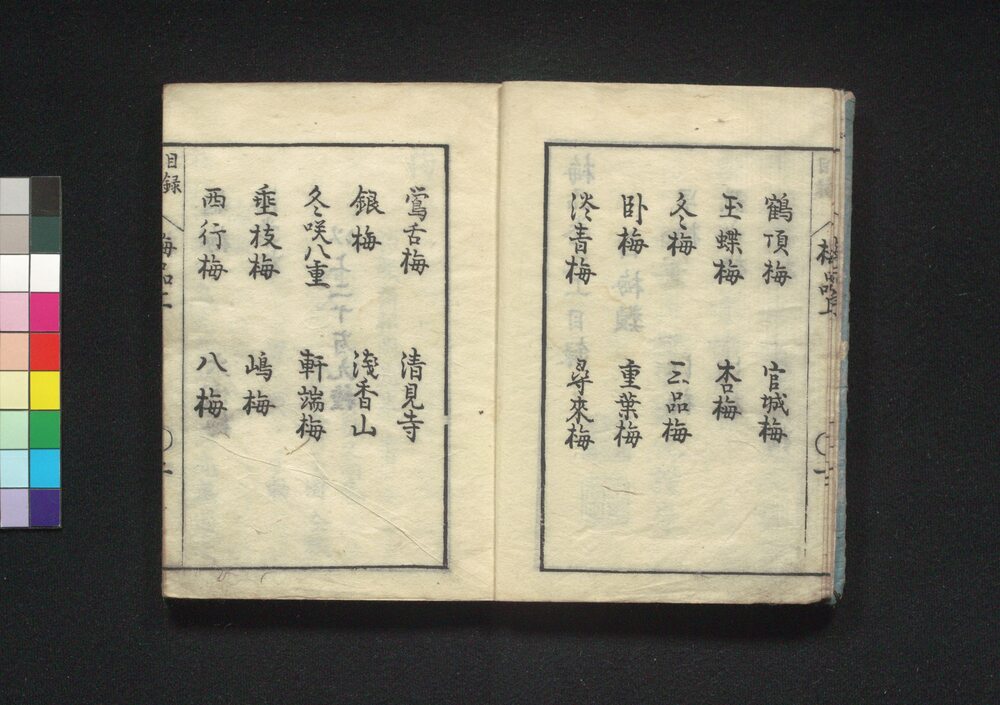 鶴頂梅
官城梅
玉蝶梅
杏梅
冬梅
三品梅
臥梅
重葉梅
淡青梅
尋來梅
梅品上
鶯舌梅
清見寺
銀梅
淺香山
冬咲八重
軒端梅
垂枝梅
嶋梅
西行梅
八梅
目録
梅品上